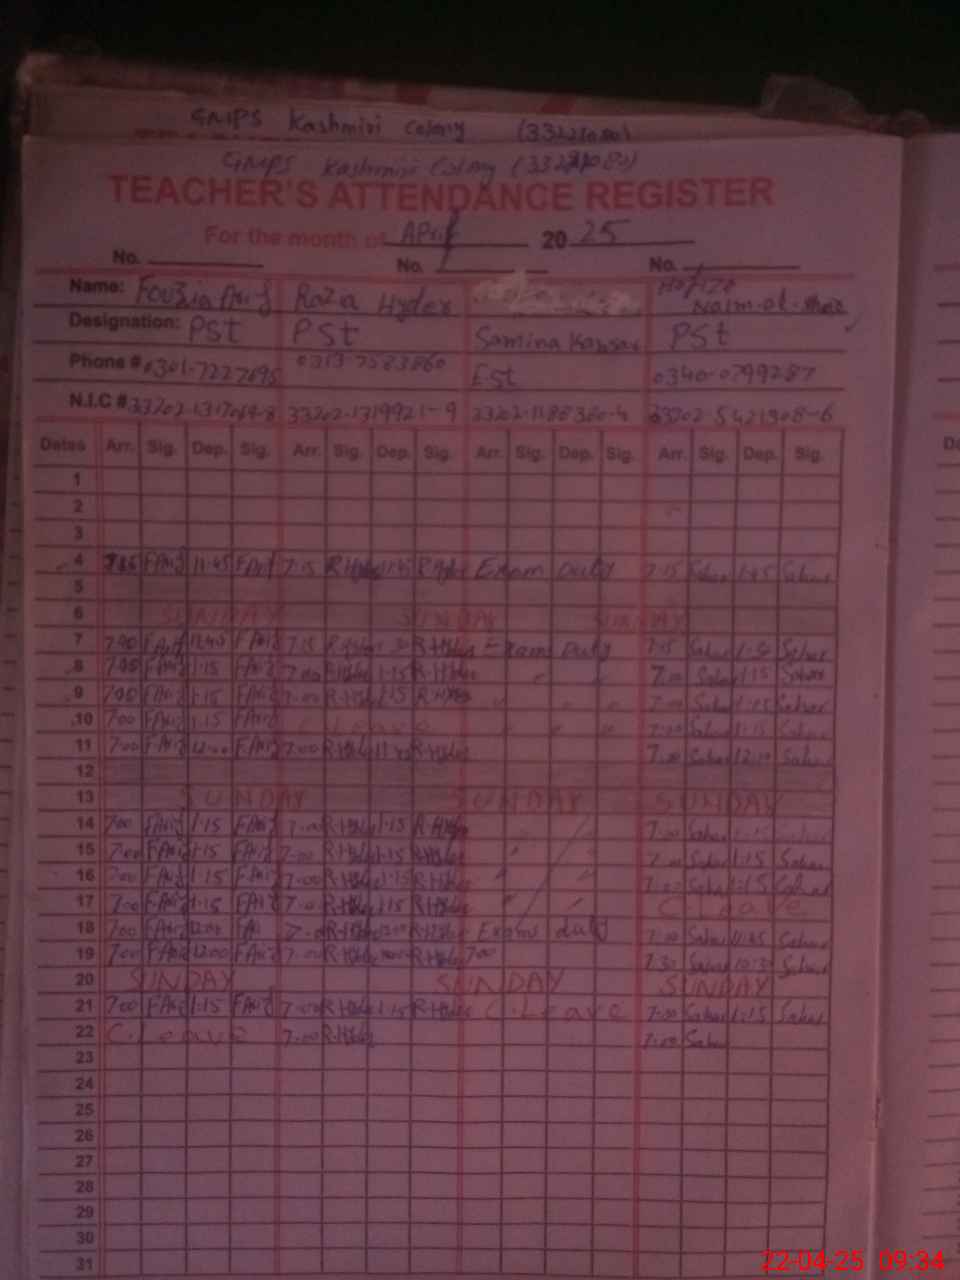 GMPS Kashmiri Colony
GMPS Kashmiri Colony
TEACHER'S ATTENDANCE REGISTER
For the month of April 2025
No. No. No.
Name: Fouzia Arif Raza Hyder Hafiza
Designation: PSt PSt Samina Kausar PSt
Phone # 0301-7227695 0313-7583860 ESt 0340-0799287
N.I.C # 33202-1319921-9 33202-5421308-6
Dates Arr. Sig. Dep. Sig. Arr. Sig. Dep. Sig. Arr. Sig. Dep. Sig. Arr. Sig. Dep. Sig.
1
2
3
4 F.Arif 11:45 F.Arif 7:15 R.Hyder 11:45 R.Hyder Exam Duty 7:15 Sahar 1:45 Sahar
5
6 SUNDAY SUNDAY SUNDAY
7 F.Arif F.Arif 7:15 R.Hyder R.Hyder Exam Duty 7:15 Sahar Sahar
8 7:00 F.Arif 1:15 F.Arif 7:00 R.Hyder 1:15 R.Hyder " " 7:00 Sahar 1:15 Sahar
9 7:00 F.Arif 1:15 F.Arif 7:00 R.Hyder 1:15 R.Hyder " " " 7:00 Sahar 1:15 Sahar
10 7:00 F.Arif 1:15 F.Arif C.Leave " " " 7:00 Sahar 1:15 Sahar
11 7:00 F.Arif 12:00 F.Arif 7:00 R.Hyder R.Hyder 7:00 Sahar Sahar
12
13 SUNDAY SUNDAY SUNDAY
14 7:00 F.Arif 1:15 F.Arif 7:00 R.Hyder 1:15 R.Hyder 7:00 Sahar 1:15 Sahar
15 7:00 F.Arif 1:15 F.Arif 7:00 R.Hyder 1:15 R.Hyder " 7:00 Sahar 1:15 Sahar
16 7:00 F.Arif 1:15 F.Arif 7:00 R.Hyder 1:15 R.Hyder " 7:00 Sahar 1:15 Sahar
17 7:00 F.Arif 1:15 F.Arif 7:00 R.Hyder 1:15 R.Hyder " C.Leave
18 7:00 F.Arif 12:00 7:00 R.Hyder 12:00 R.Hyder Exams duty 7:00 Sahar Sahar
19 7:00 F.Arif 12:00 F.Arif 7:00 R.Hyder R.Hyder 7:00 7:30 Sahar 10:30 Sahar
20 SUNDAY SUNDAY SUNDAY
21 7:00 F.Arif 1:15 F.Arif 7:00 R.Hyder 1:15 R.Hyder C.Leave 7:00 Sahar 1:15 Sahar
22 C.Leave 7:00 R.Hyder 7:00 Sahar
23
24
25
26
27
28
29
30
31
22-04-25 09:34